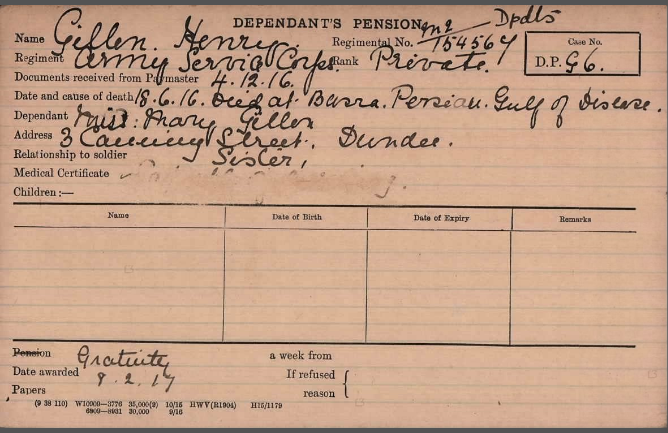 DEPENDANT'S PENSION Dpdts
Name Gillon. Henry. Regimental No. M2/154564 Case No.
Regiment Army Service Corps. Rank Private. D.P. G6.
Documents received from Paymaster 4.12.16.
Date and cause of death 18.6.16. Died at Basra. Persian. Gulf of Disease.
Dependant Miss. Mary Gillon
Address 3 Canning Street. Dundee.
Relationship to soldier Sister,
Medical Certificate
Children:—
Name Date of Birth Date of Expiry Remarks
Pension Gratuity a week from
Date awarded 8.2.17 If refused
Papers reason
(9 38 110) W10909—3776 35,000(2) 10/16 HWV(R1904) H15/1179
6909—8931 30,000 9/16